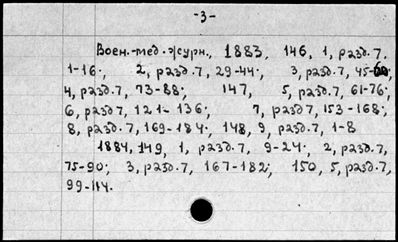 -3-
Воен.-мед. журн., 1883, 146, 1, разд. 7,
1-16; 2, разд. 7, 29-44; 3, разд. 7, 45-60;
4, разд. 7, 73-88; 147, 5, разд. 7, 61-76;
6, разд 7, 121-136; 7, разд 7, 153-168;
8, разд. 7, 169-184; 148, 9, разд. 7, 1-8
1884, 149, 1, разд. 7, 9-24; 2, разд. 7,
75-90; 3, разд. 7, 167-182; 150, 5, разд. 7,
99-114.